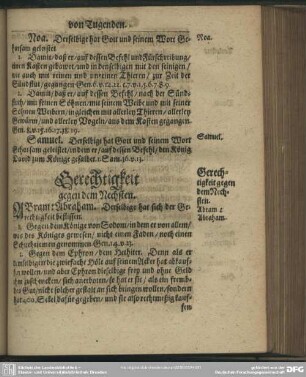 von Tugenden.
Noa. Derselbige hat Gott und seinem Wort Ge-
horsam geleistet
Noa.
1. Damit/ daß er/ auf dessen Befehl und Fürschreibung/
einen Kasten gebauet/ und in denselbigen mit den seinigen/
wie auch mit reinen und unreinen Thieren/ zur Zeit der
Sündflut/ gegangen Gen. 6. v.
2. Damit/ daß er/ auf dessen Befehl/ nach der Sünd-
fluth/ mit seinen Söhnen/ mit seinem Weibe und mit seiner
Söhnen Weibern/ in gleichen mit allerley Thieren/ allerley
Gewürm/ und allerley Vogeln/ aus dem Kasten gegangen
Gen. 8. v. 15. 16. 17. 18. 19.
Samuel. Derselbige hat Gott und seinem Wort
Gehorsam geleistet/ indem er/ auf dessen Befehl/ den König
Saul zum Könige gesalbet 1. Sam.
Samuel.
Gerechtigkeit
gegen dem Nechsten.
Gerech-
tigkeit gegen
dem Nech-
sten.
Abram :
Abraham.
ABram : Abraham. Derselbige hat sich der Ge-
rechtigkeit beflissen.
1. Gegen dem Könige von Sodom/ in dem er von allem/
was des Königes gewesen/ nicht einen Faden/ noch einen
Schuchriemen genommen Gen. 14. v. 23.
2. Gegen dem Ephron/ dem Hethiter. Denn als er
demselbigen die zwiefache Höle auf seinem Acker hat abkauf-
fen wollen/ und aber Ephron dieselbige frey und ohne Geld
ihm zuschencken/ sich anerboten/
hat 400. Sekel dafür gegeben/ und sie also rechtmäßig kauf-
fen